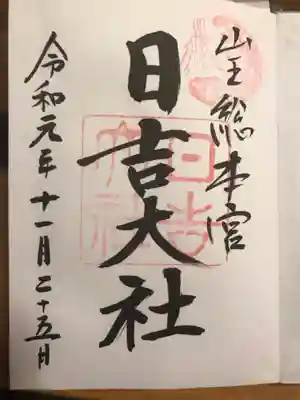 山王総本宮
日吉大社
令和元年十一月二十五日